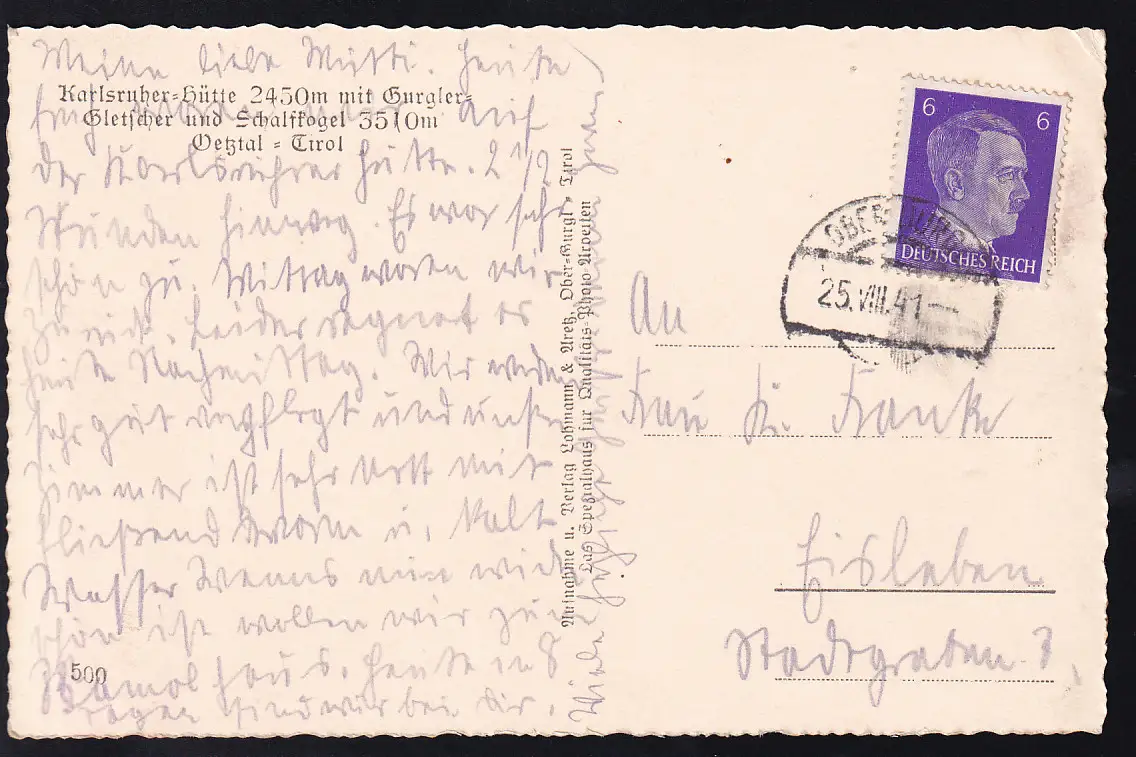 Karlsruher-Hütte 2450m mit Gurgler-
Gletscher und Schalfkogel 3510m
Oetztal - Tirol
Meine liebe Mutti. Heute
früh waren wir auf
der Karlsruher Hütte. 2 1/2
Stunden hinweg. Es war sehr
schön zu. Mittag waren wir
zurück. Leider regnet es
heute Nachmittag. Wir werden
sehr gut verpflegt und unser
Zimmer ist sehr nett mit
fließend warm u. kalt
Wasser Wenns nun wieder
schön ist wollen wir zum
Ramolhaus. Heute in 8
Tagen sind wir bei dir.
Viele herzliche Grüße
500
Aufnahme u. Verlag Lohmann & Aretz, Ober-Gurgl - Tirol
Das Spezialhaus für Qualitäts-Photo-Arbeiten
6 6
DEUTSCHES REICH
OBERGURGL
25.VIII.41
An
Frau Franke
Eisleben
Stadtgraben